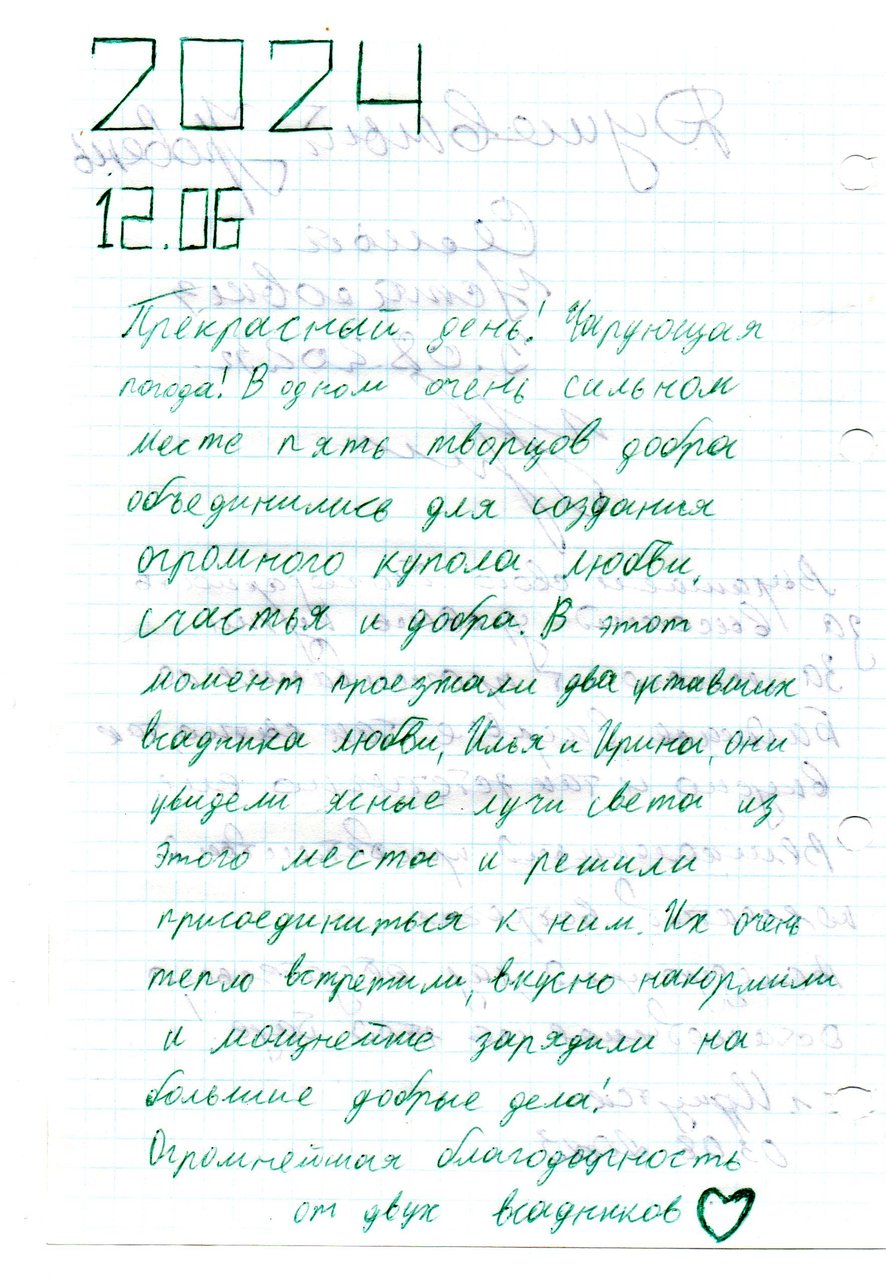 2024
12.06
Прекрасный день! Чарующая
погода! В одном очень сильном
месте пять творцов добра
объединились для создания
огромного купола любви,
счастья и добра. В этот
момент проезжали два уставших
всадника любви, Илья и Ирина, они
увидели ясные лучи света из
этого места и решили
присоединиться к ним. Их очень
тепло встретили, вкусно накормили
и мощнейше зарядили на
большие добрые дела!
Огромнейшая благодарность
от двух всадников